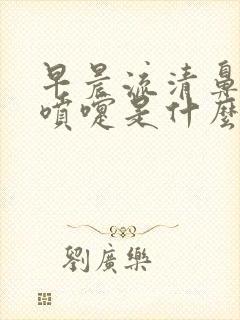 早晨流清鼻
噴嚏是什麼
劉廣樂